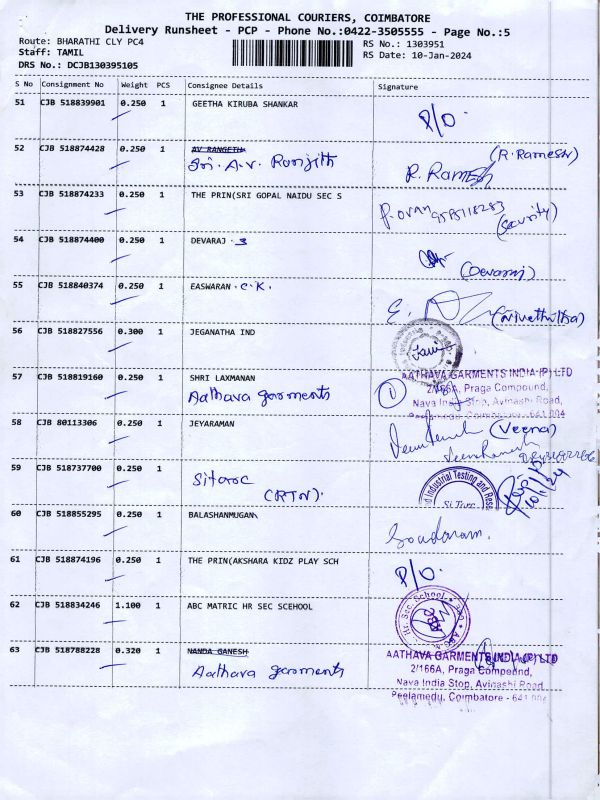 THE PROFESSIONAL COURIERS, COIMBATORE
Delivery Runsheet - PCP - Phone No.:0422-3505555 - Page No.:5
Route: BHARATHI CLY PC4
RS No.: 1303951
Staff: TAMIL
RS Date: 10-Jan-2024
DRS No.: DCJB130395105
S No Consignment No Weight PCS Consignee Details Signature
51 CJB 518839901 0.250 1 GEETHA KIRUBA SHANKAR
P/O.
52 CJB 518874428 0.250 1 AV RANGETH (R.Ramesh)
Sri. A.V. Runjith R. Ramesh
53 CJB 518874233 0.250 1 THE PRIN(SRI GOPAL NAIDU SEC S
(Security)
54 CJB 518874400 0.250 1 DEVARAJ . 3
(Devaraj)
55 CJB 518840374 0.250 1 EASWARAN . C.K.
56 CJB 518827556 0.300 1 JEGANATHA IND
57 CJB 518819160 0.250 1 SHRI LAXMANAN
AATHAVA GARMENTS INDIA (P) LTD
Aathava garments 1 2/166A, Praga Compound,
Nava India Stop, Avinashi Road,
Peelamedu, Coimbatore - 641 004
58 CJB 80113306 0.250 1 JEYARAMAN (Veena)
59 CJB 518737700 0.250 1
Sitarc
(RTN).
Industrial Testing and
Si Tarc
10/1/24
60 CJB 518855295 0.250 1 BALASHANMUGAN
Soundaram.
61 CJB 518874196 0.250 1 THE PRIN(AKSHARA KIDZ PLAY SCH
P/O.
62 CJB 518834246 1.100 1 ABC MATRIC HR SEC SCEHOOL
Hr. Sec. School
ABC
63 CJB 518788228 0.320 1 NANDA GANESH
Aathava garments
AATHAVA GARMENTS INDIA (P) LTD
2/166A, Praga Compound,
Nava India Stop, Avinashi Road,
Peelamedu, Coimbatore - 641 004